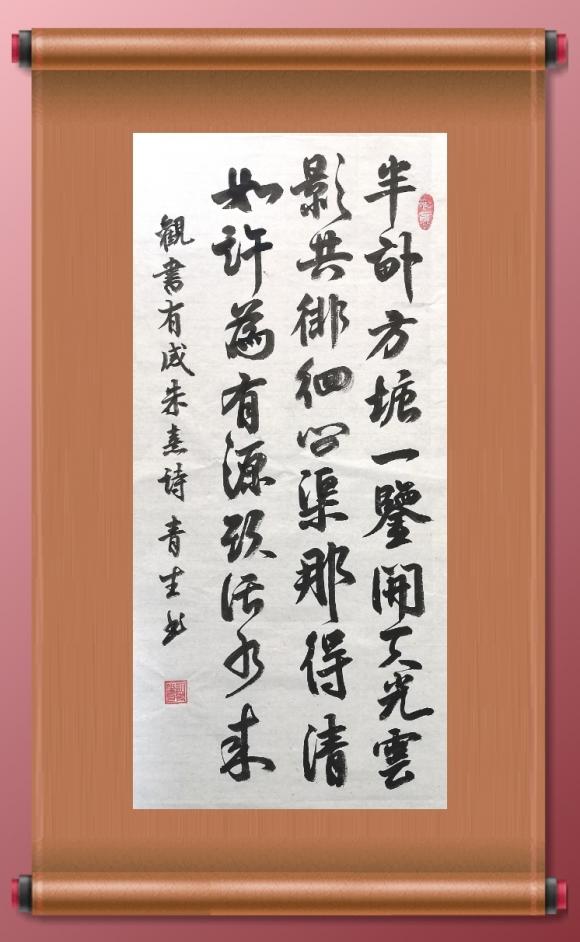 半畝方塘一鑒開天光雲
影共徘徊問渠那得清
如許為有源頭活水來
觀書有感朱熹詩 青生书